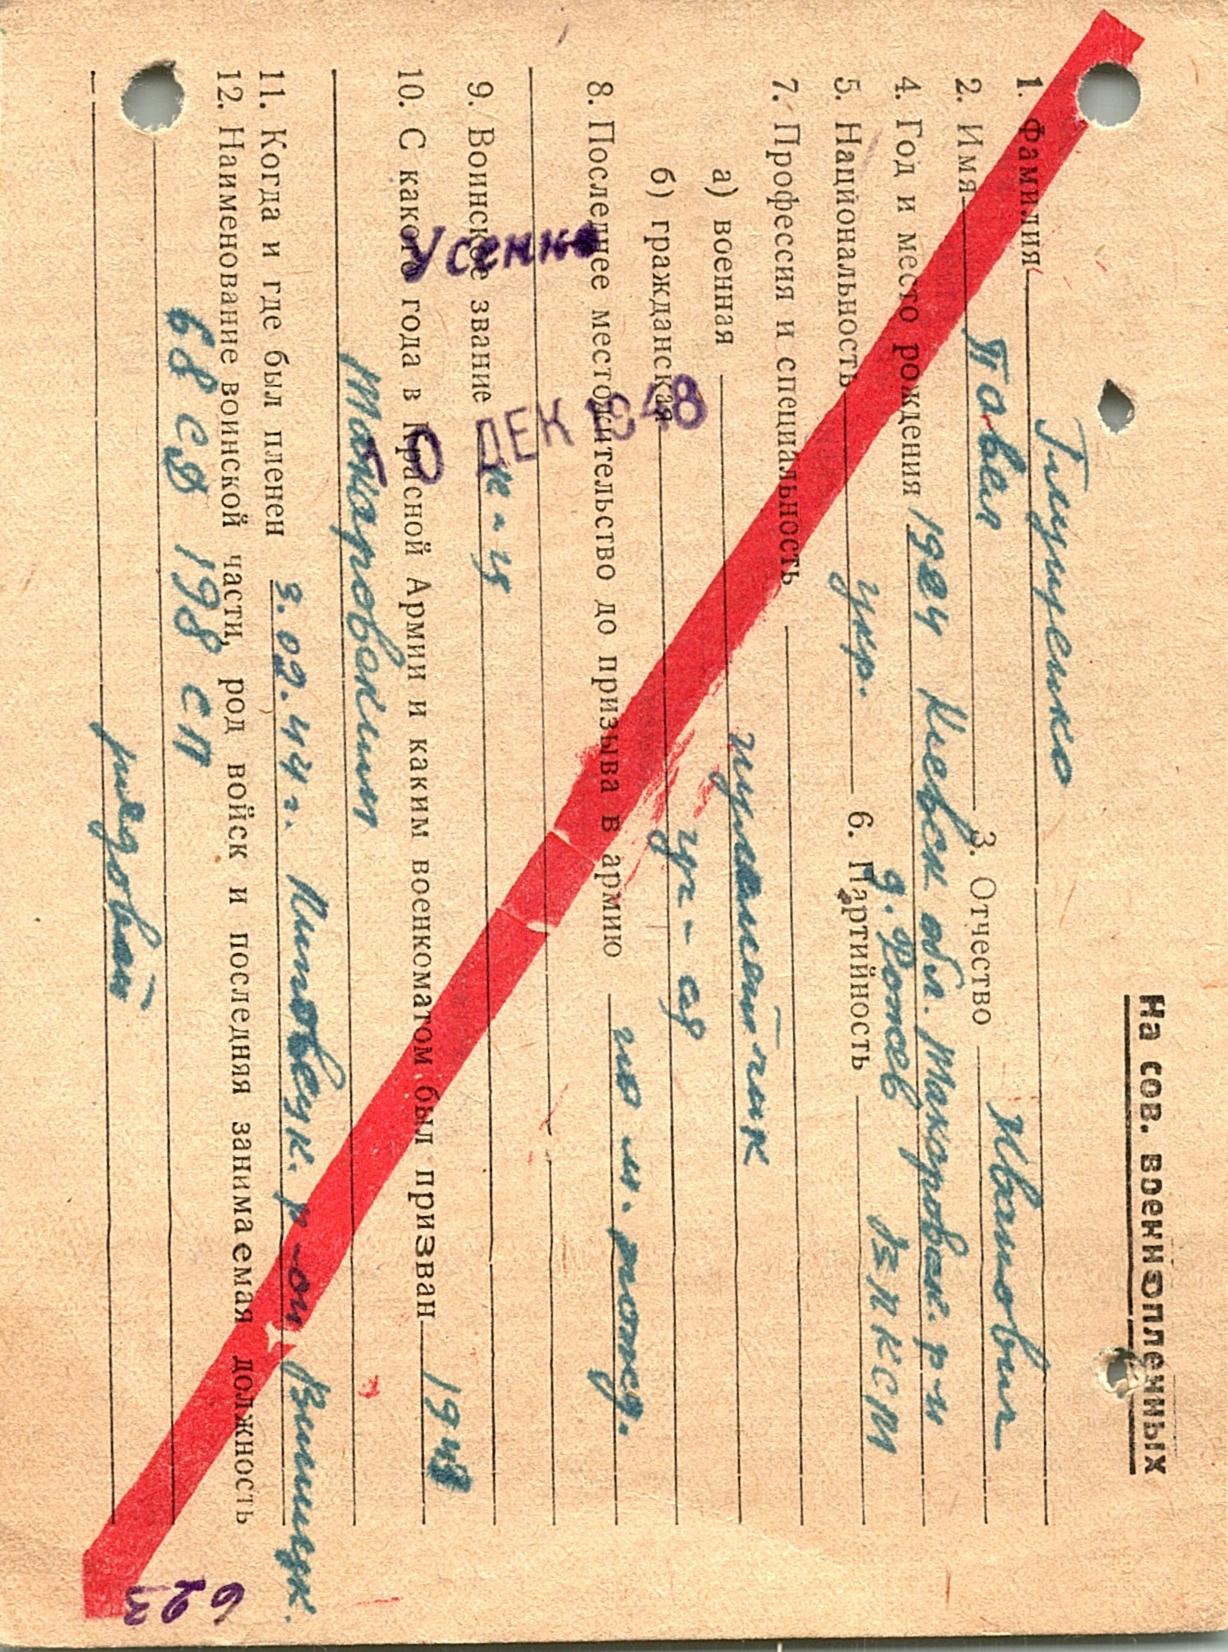 На сов. военнопленных
1. Фамилия Глущенко
2. Имя Павел 3. Отчество Иванович
4. Год и место рождения 1924 Киевск обл. Макаровск. р-н
д.
5. Национальность укр. 6. Партийность ВЛКСМ
7. Профессия и специальность
а) военная
б) гражданская уч-ся
8. Последнее местожительство до призыва в армию по м. рожд.
9. Воинское звание к-ц
10. С какого года в Красной Армии и каким военкоматом был призван 1943
Макаровским
Усенко
10 ДЕК 1948
11. Когда и где был пленен 3.02.44 г. Винницк.
12. Наименование воинской части, род войск и последняя занимаемая должность
68 сд 198 сп
рядовой
623